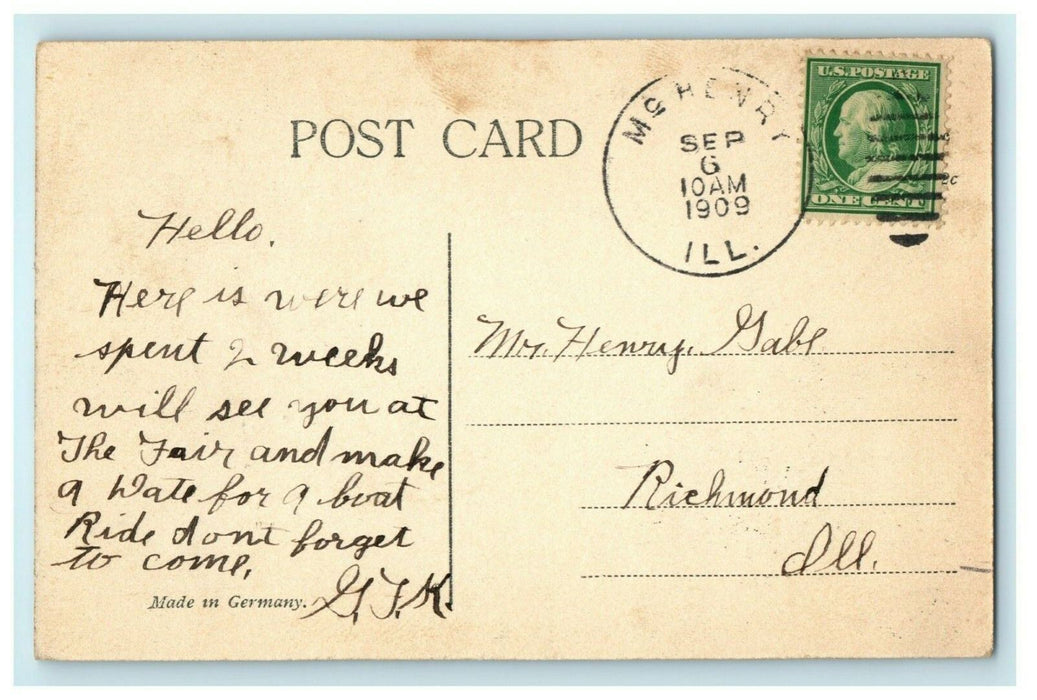 POST CARD
McHENRY
SEP
6
10AM
1909
ILL.
U.S. POSTAGE
ONE CENT
Hello.
Here is were we
spent 2 weeks
will see you at
The Fair and make
a Date for a boat
Ride dont forget
to come.
G.F.K.
Made in Germany.
Mr. Henry. Gabl
Richmond
Ill.